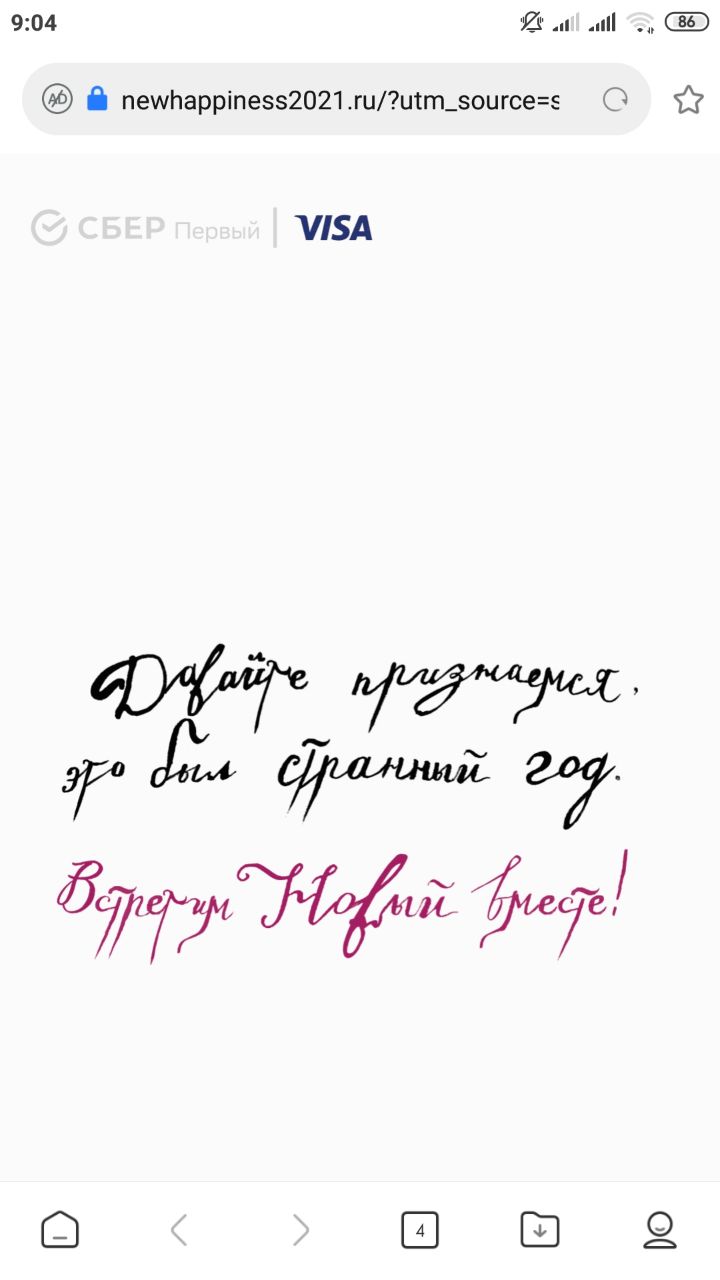 9:04
86
newhappiness2021.ru/?utm_source=s
СБЕР Первый | VISA
Давайте признаемся,
это был странный год.
Встретим Новый вместе!
4